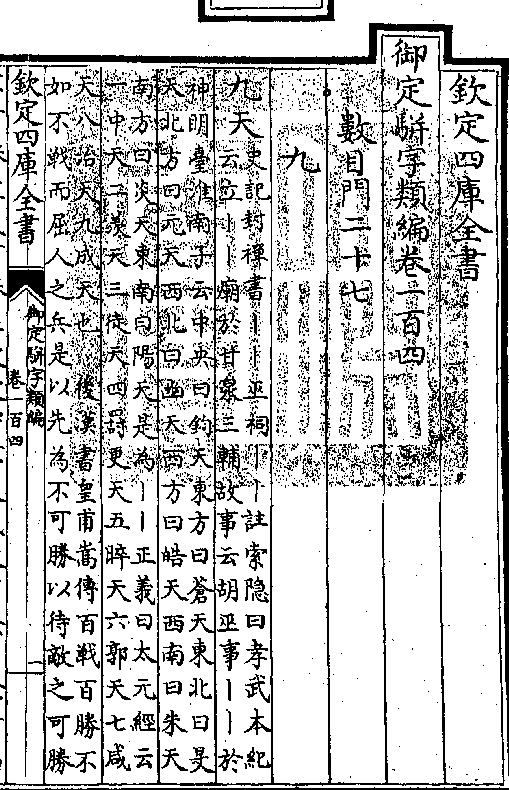 欽定四庫全書
御定駢字類編卷一百四
數目門二十七
九
九天
史記封禪書丨丨巫祠丨丨註索隱曰孝武本紀
云立丨丨廟於甘泉三輔故事云胡巫事丨丨於
神明臺淮南子云中央曰鈞天東方曰蒼天東北曰旻
天北方曰元天西北曰幽天西方曰皓天西南曰朱天
南方曰炎天東南曰陽天是為丨丨正義曰太元經云
一中天二羨天三徒天四罰更天五晬天六郭天七咸
天八治天九成天也 後漢書皇甫嵩傳百戰百勝不
如不戰而屈人之兵是以先為不可勝以待敵之可勝
欽定四庫全書
御定駢字類編
卷一百四
一